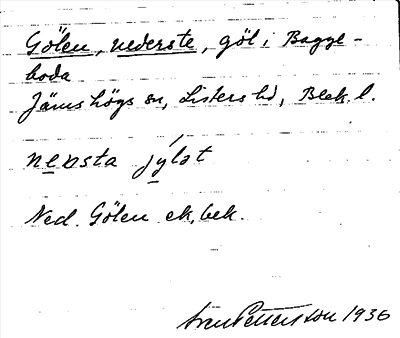 Gölen, nederste, göl i Bagge-
boda
Jämshögs sn, Listers hd, Blek. l.
jýlət
Ned. Gölen ek, bek.
Sven Pettersson 1936